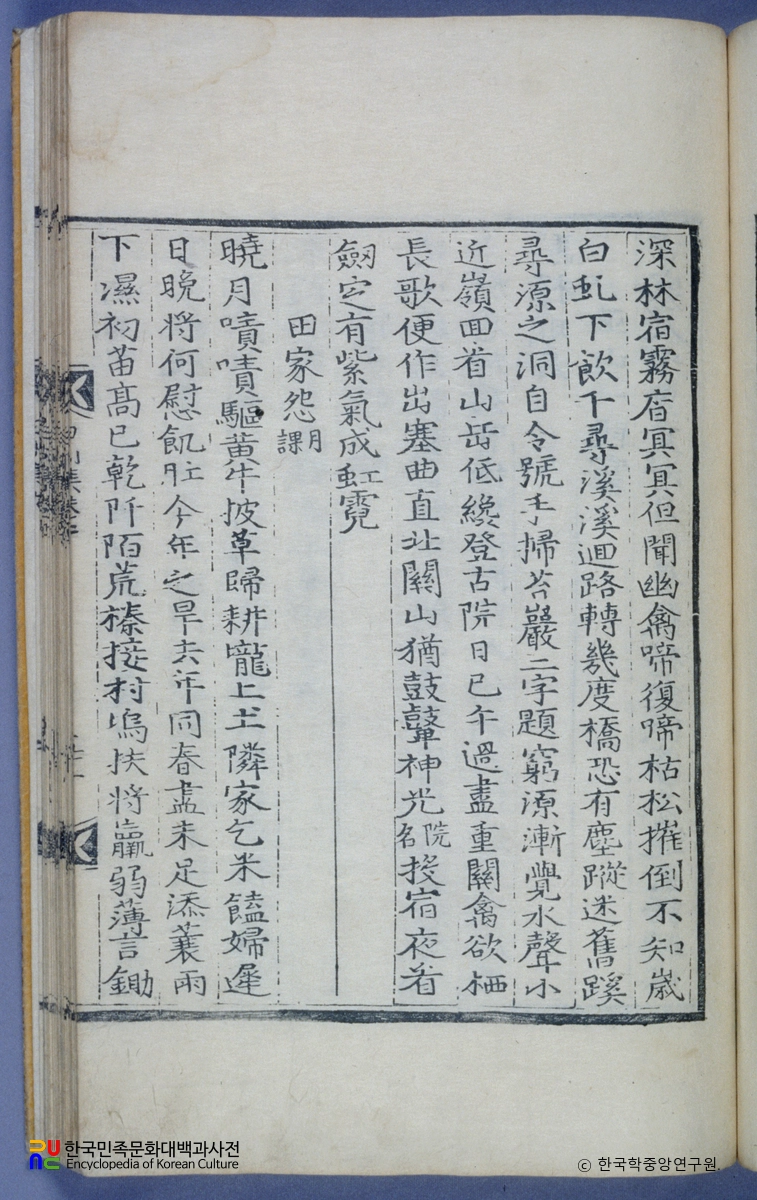 深林宿霧杳冥冥但聞幽禽啼復啼枯松摧倒不知歲
白虬下飮千尋溪溪迴路轉幾度橋恐有塵蹤迷舊蹊
尋源之洞自令號手掃苔巖二字題窮源漸覺水聲小
近嶺回看山岳低纔登古院日已午過盡重關禽欲栖
長歌便作出塞曲直北關山猶鼓鼙神光院名投宿夜看
劒定有紫氣成虹霓
田家怨月課
曉月嘖嘖驅黃牛披草歸耕隴上土隣家乞米饁婦遲
日晩將何慰飢肚今年之旱去年同春盡未足添蓑雨
下濕初苗高已乾阡陌荒榛接村塢扶將羸弱薄言鋤
한국민족문화대백과사전
Encyclopedia of Korean Culture
© 한국학중앙연구원